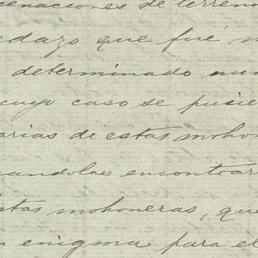 enaciones de terreno
edazo que fué
determinado nun
cuyo caso se pusie
arias de estas mohon
andolas encontrar
stas mohoneras, que
enigma para el